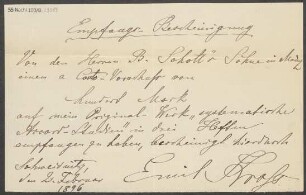 Empfangs-Bescheinigung
Von den Herren B. Schott's Söhne in Mainz
einen a Cto-Vorschuß von
Hundert Mark
auf mein Original Werk, systematische
Accord-Studien in drei Heften
empfangen zu haben, bescheinigt hierdurch
Schweidnitz
den 21. Februar
1896
Emil Kross